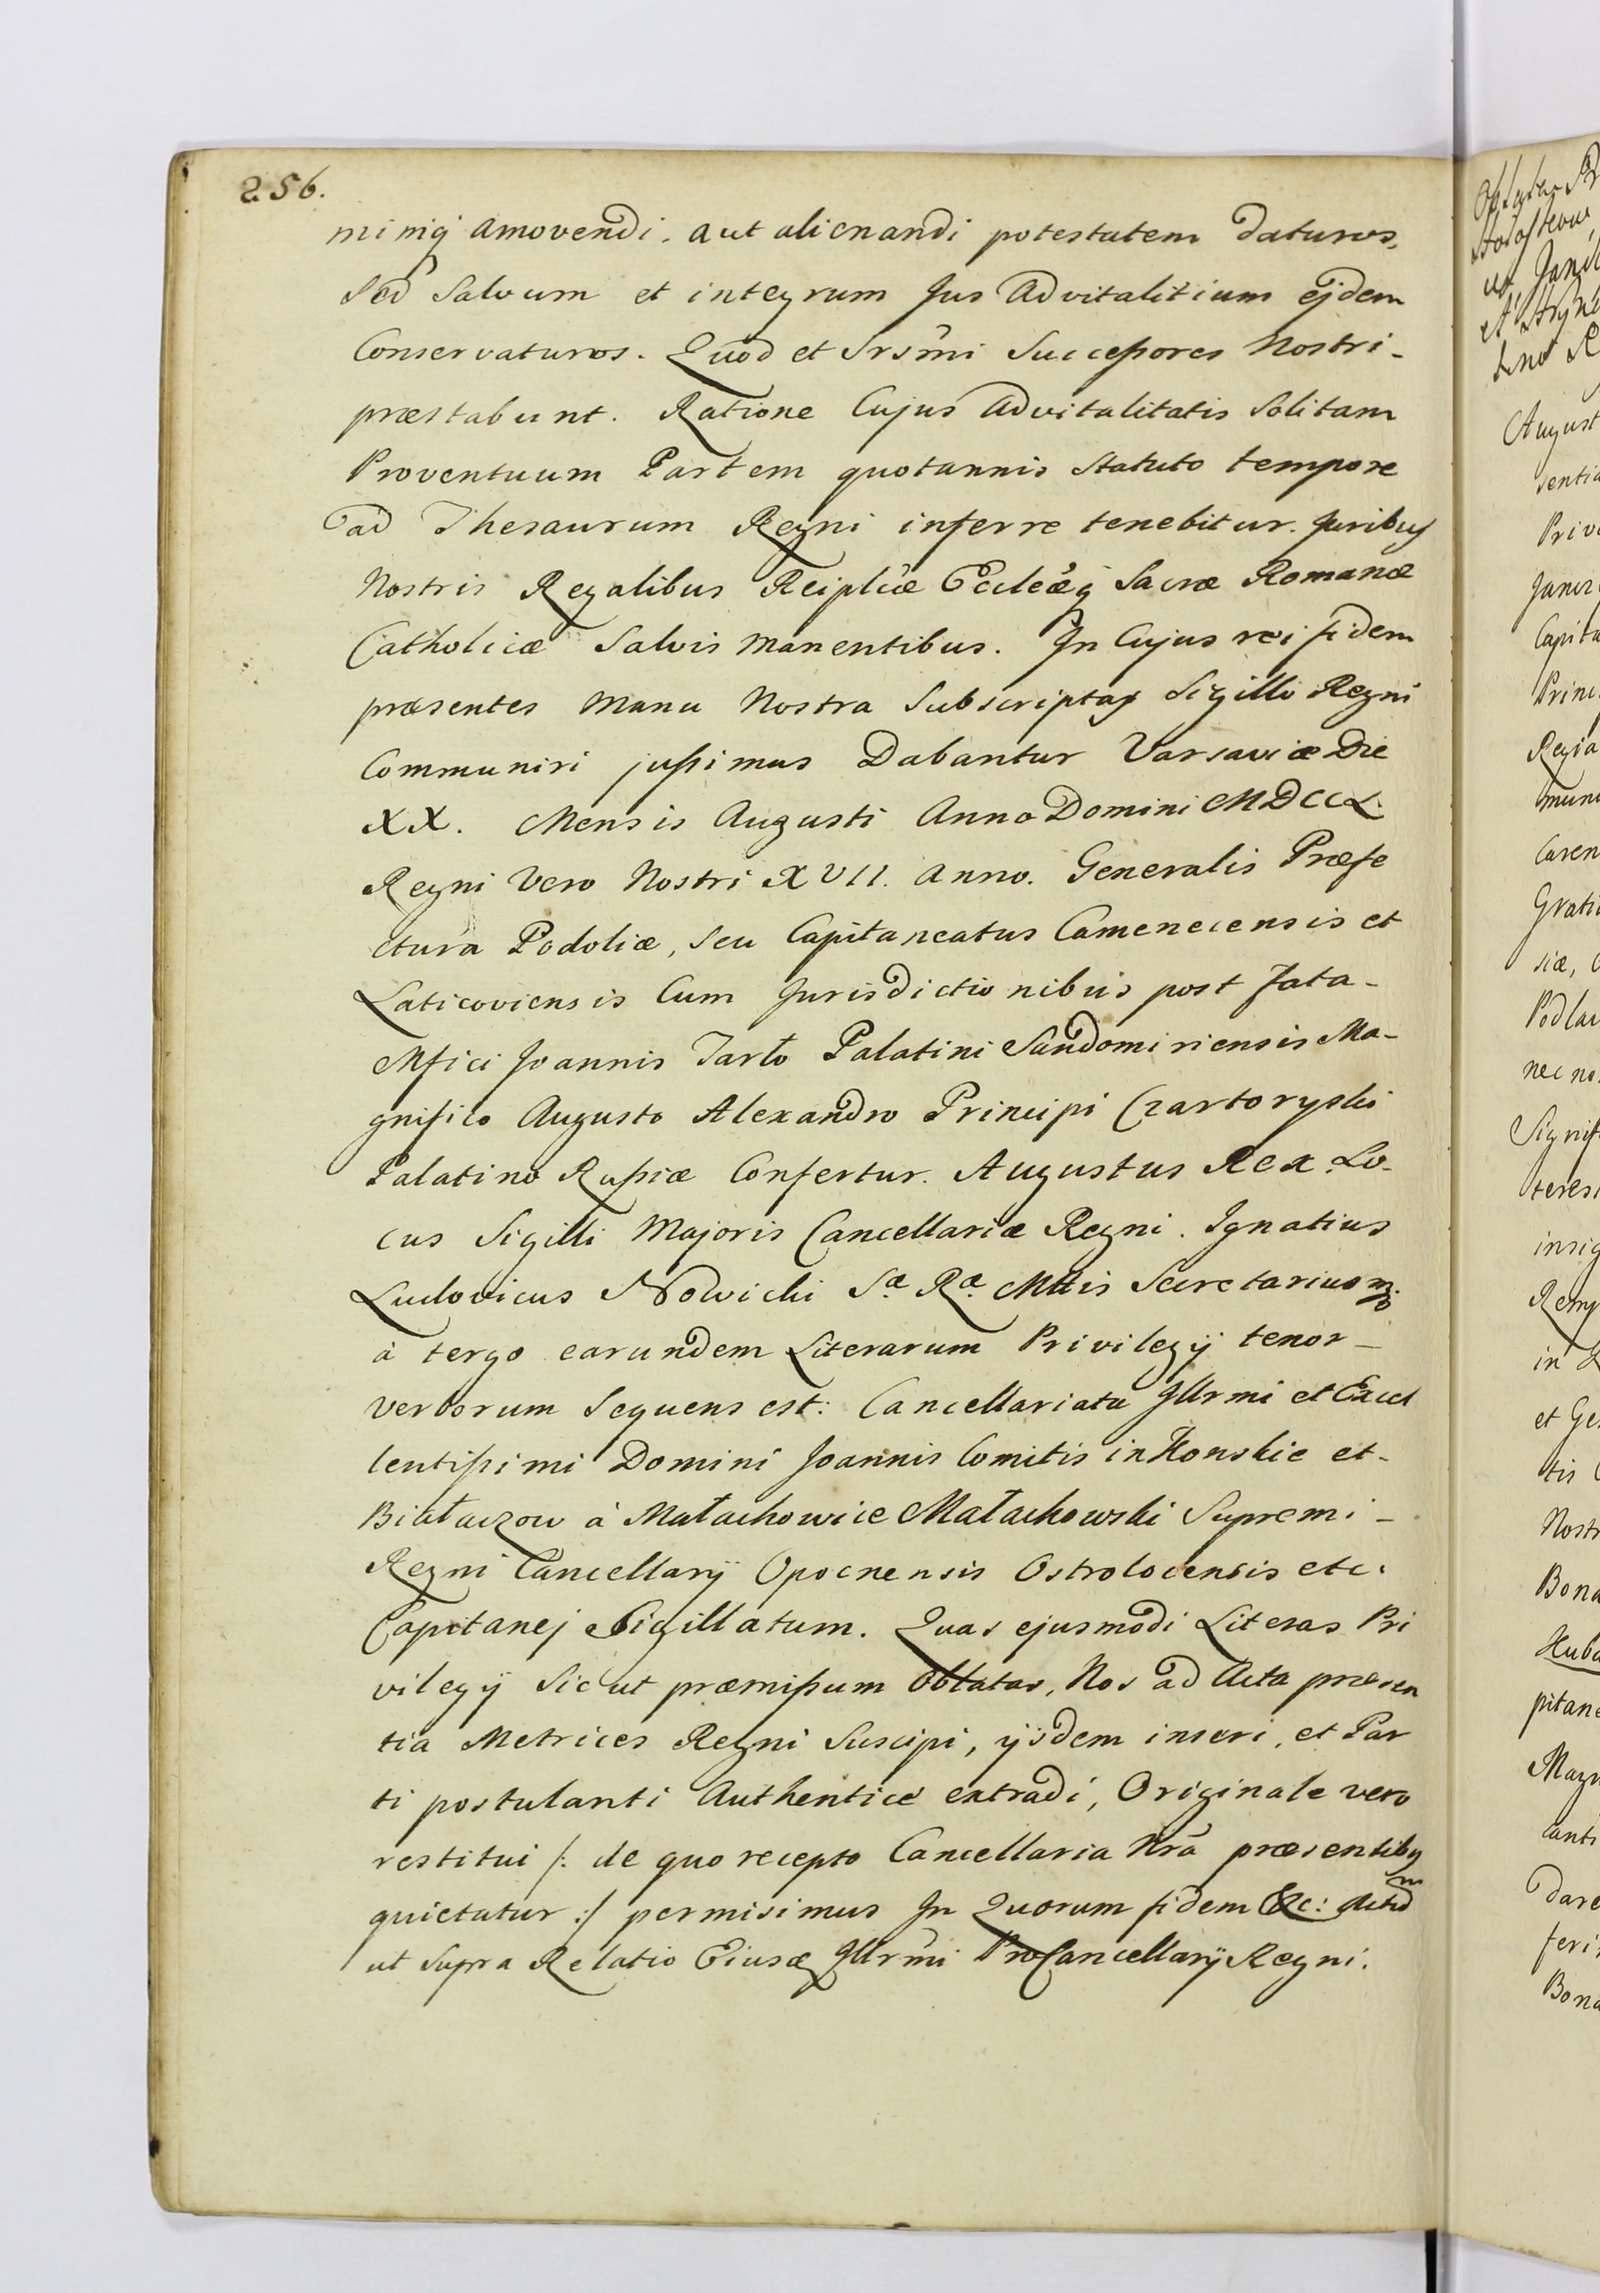 256.
miniq amovendi, aut alienandi potestatem daturos,
Sed Salvum et integrum Jus Advitalitium ejdem
Conservaturos. Quod et Srsmi Succeßores Nostri -
præstabunt. Ratione Cujus Advitalitatis Solitam
Proventuum Partem quotannis Statuto tempore
ad Thesaurum Regni inferre tenebitur. Juribus
Nostris Regalibus Reiplicæ Eccleæq Sacræ Romanæ
Catholicæ Salvis manentibus. In Cujus rei fidem
præsentes Manu Nostra Subscriptas Sigillo Regni
Communiri jußimus Dabantur Varsaviæ Die
XX. Mensis Augusti Anno Domini MDCCL.
Regni Vero Nostri XVII. Anno. Generalis Præfe
ctura Podoliæ, seu Capitaneatus Camenecensis et
Laticoviensis Cum Jurisdictionibus post fata -
Mfici Joannis Tarło Palatini Sandomiriensis Ma-
gnifico Augusto Alexandro Principi Czartoryski
Palatino Rußiæ Confertur. Augustus Rex Lo-
cus Sigilli Majoris Cancellariæ Regni. Ignatius
Ludovicus Nowicki Sæ Ræ Mttis Secretarius mp
à tergo earundem Literarum Privilegÿ tenor -
verborum Sequens est: Cancellariatu Jllrmi et Excel
lentißimi Domini Joannis Comitis in Konskie et -
Białaczow à Małachowice Małachowski Supremi -
Regni Cancellarÿ Opocnensis Ostrolocensis etc.
Capitanej Sigillatum. Quas ejusmodi Literas Pri
vilegÿ Sicut præmißum oblatas, Nos ad Acta præsen
tia Metrices Regni Suscipi, ÿsdem inseri, et Par
ti postulanti Authentice extradi, Originale vero
restitui /: de quo recepto Cancellaria Nrã præsentibus
quietatur :/ permisimus In Quorum fidem &c: Actum
ut Supra Relatio Ejusdæ Jllrmi ProCancellarÿ Regni.